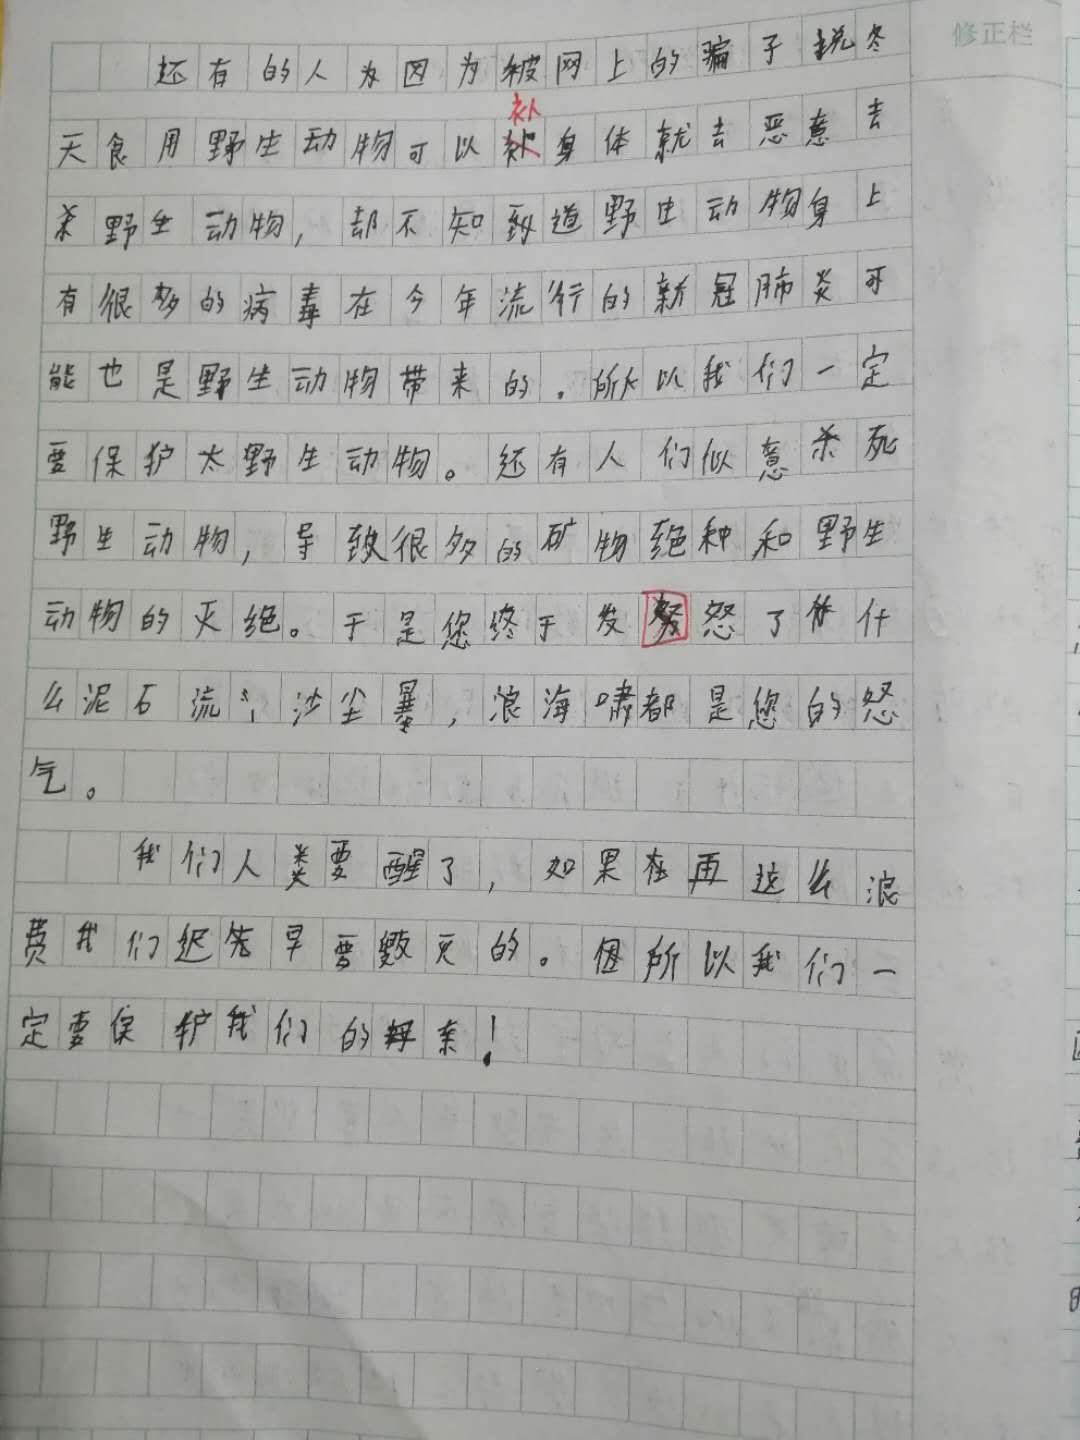 修正栏
还有的人为因为被网上的骗子说冬
补
天食用野生动物可以身体就去恶意去
杀野生动物，却不知到道野生动物身上
有很多的病毒在今年流行的新冠肺炎可
能也是野生动物带来的。所以我们一定
要保护大野生动物。还有人们似意杀死
野生动物，导致很多的矿物绝种和野生
动物的灭绝。于是您终于发怒了什
么泥石流，沙尘暴，浪海啸都是您的怒
气。
我们人类要醒了，如果在再这么浪
费我们迟先早要毁灭的。但所以我们一
定要保护我们的母亲！